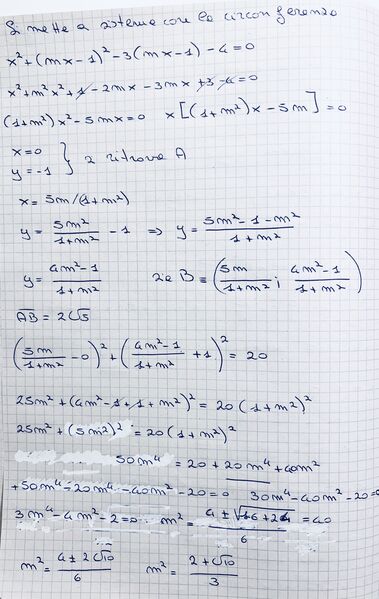 Si mette a sistema con la circonferenza
x² + (mx - 1)² - 3(mx - 1) - 4 = 0
x² + m²x² + 1 - 2mx - 3mx + 3 - 4 = 0
(1+m²)x² - 5mx = 0 x[(1+m²)x - 5m] = 0
x = 0
y = -1 } si ritrova A
x = 5m/(1+m²)
y = 5m²/(1+m²) - 1 ⇒ y = (5m² - 1 - m²)/(1+m²)
y = (4m² - 1)/(1+m²) B ≡ (5m/(1+m²) ; (4m² - 1)/(1+m²))
AB = 2√5
(5m/(1+m²) - 0)² + ((4m² - 1)/(1+m²) + 1)² = 20
25m² + (4m² - 1 + 1 + m²)² = 20(1+m²)²
25m² + (5m²)² = 20(1+m²)²
50m⁴ = 20 + 20m⁴ + 40m²
+50m⁴ - 20m⁴ - 40m² - 20 = 0 30m⁴ - 40m² - 20 = 0
3m⁴ - 4m² - 2 = 0 m² = (4 ± √(16 + 24))/6 = 40
m² = (4 ± 2√10)/6 m² = (2 + √10)/3